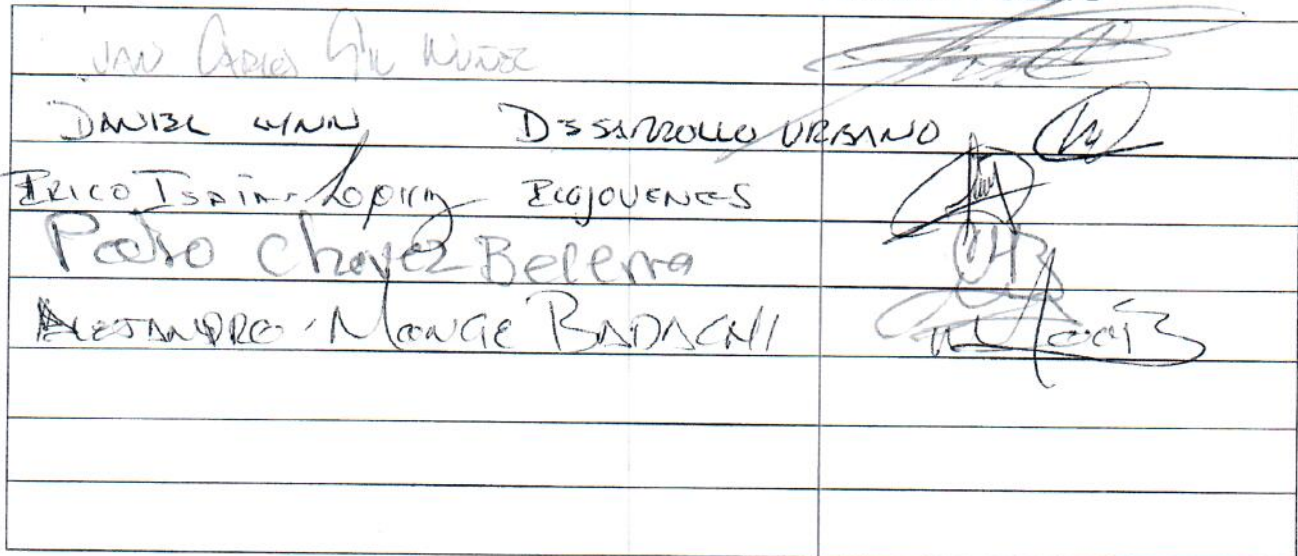 JUAN CARLOS GIL NUÑEZ
DANIEL LYNN DESARROLLO URBANO
ERICO ISAÍAS LOPEZ ECOJOVENES
Pedro Chavez Becerra
ALEJANDRO MONGE BADACHI